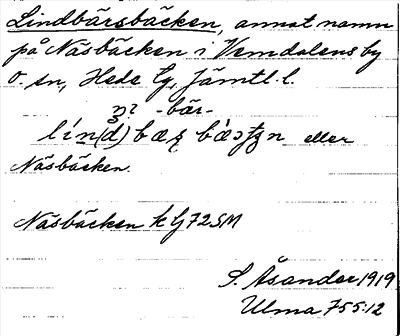 Lindbärsbäcken, annat namn
på Näsbäcken i Vemdalens by
o. sn, Hede tg, Jämtl. l.
-bär-
eller
Näsbäcken.
Näsbäcken k Lj 72 SM
S. Åsander 1919
Ulma 755:12